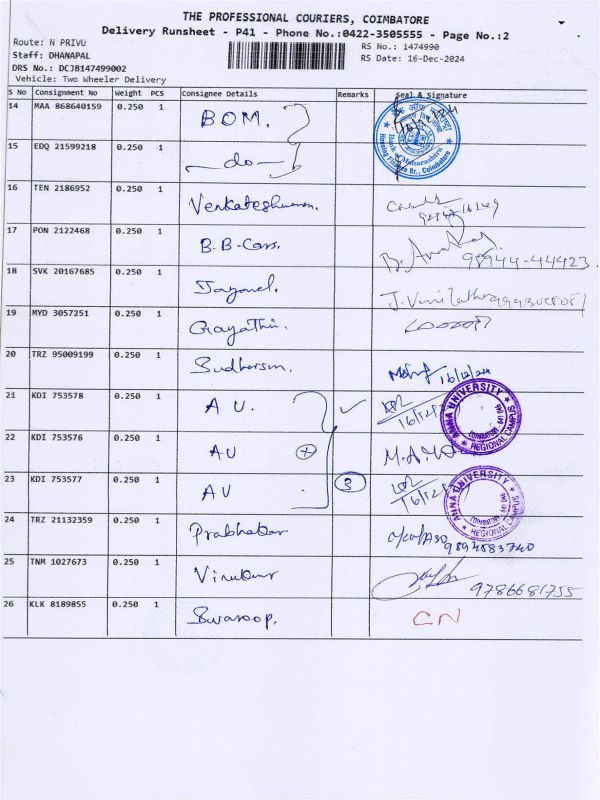 THE PROFESSIONAL COURIERS, COIMBATORE
Delivery Runsheet - P41 - Phone No.:0422-3505555 - Page No.:2
Route: N PRIVU
RS No.: 1474990
Staff: DHANAPAL
RS Date: 16-Dec-2024
DRS No.: DCJB147499002
Vehicle: Two Wheeler Delivery
S No Consignment No Weight PCS Consignee Details Remarks Seal & Signature
14 MAA 868640159 0.250 1 BOM.
Bank of Maharashtra
Housing Finance Br., Coimbatore
15 EDQ 21599218 0.250 1 -do-
16 TEN 2186952 0.250 1
17 PON 2122468 0.250 1 98944-44423
18 SVK 20167685 0.250 1
19 MYD 3057251 0.250 1 Gayathri.
20 TRZ 95009199 0.250 1 Sudharsan. 16/12/24
21 KDI 753578 0.250 1 AU. ✓
ANNA UNIVERSITY
REGIONAL CAMPUS
22 KDI 753576 0.250 1 AU +
23 KDI 753577 0.250 1 AU 3
ANNA UNIVERSITY
REGIONAL CAMPUS
24 TRZ 21132359 0.250 1 Prabhakar
25 TNM 1027673 0.250 1 9786681755
26 KLK 8189855 0.250 1 Swaroop. CN